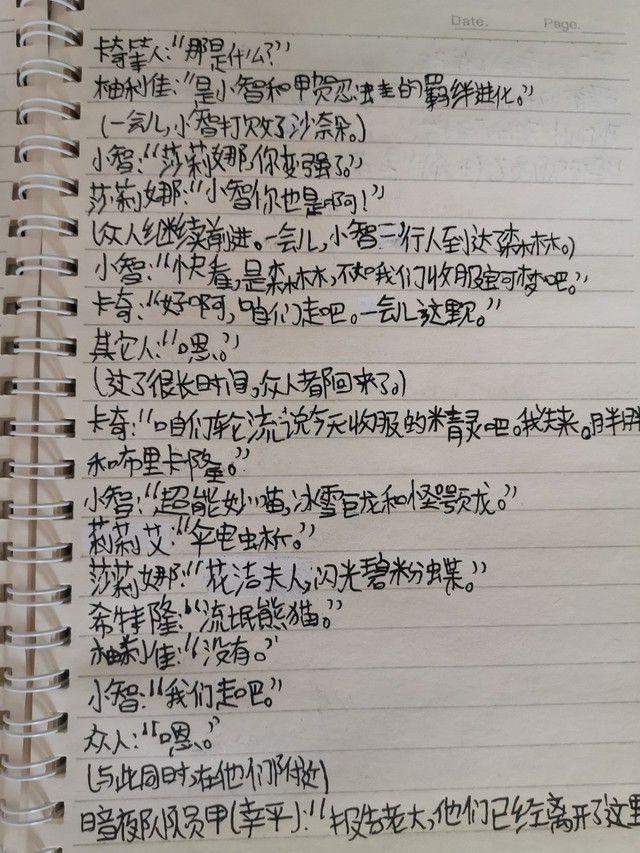 Date.　　Page.
卡奇笨人:“那是什么?”
柚利佳:“是小智和甲贺忍蛙的羁绊进化。”
(一会儿,小智打败了沙奈朵。)
小智:“莎莉娜那,你变强了。”
莎莉娜:“小智你也是啊!”
(众人继续前进。一会儿,小智一行人到达了森林。)
小智:“快看,是森林,不如我们收服宝可梦吧。”
卡奇:“好啊,咱们走吧。一会儿这里见。”
其它人:“嗯。”
(过了很长时间,众人都回来了。)
卡奇:“咱们轮流说今天收服的精灵吧。我先来。胖胖
和布里卡隆。”
小智:“超能妙喵,冰雪巨龙和怪颚龙。”
莉莉艾:“伞电虫析。”
莎莉娜:“花洁夫人,闪光碧粉蝶。”
希特隆:“流氓熊猫。”
柚利佳:“没有。”
小智:“我们走吧。”
众人:“嗯。”
(与此同时,在他们附近)
暗夜队队员甲(幸平):“报告老大,他们已经离开了这里